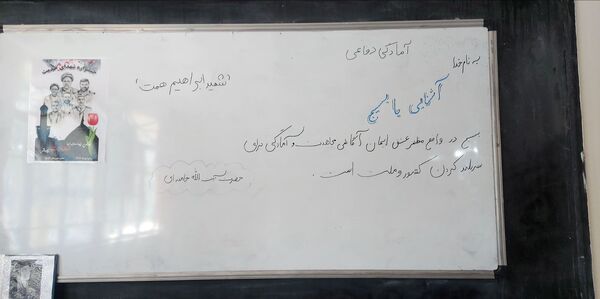 به نام خدا
آمادگی دفاعی
"شهید ابراهیم همت"
آشنایی با بسیج
بسیج در واقع مظهر عشق ایمان آگاهی مجاهدت و آمادگی برای
سربلند کردن کشور و ملت است .
حضرت آیت الله خامنه ای